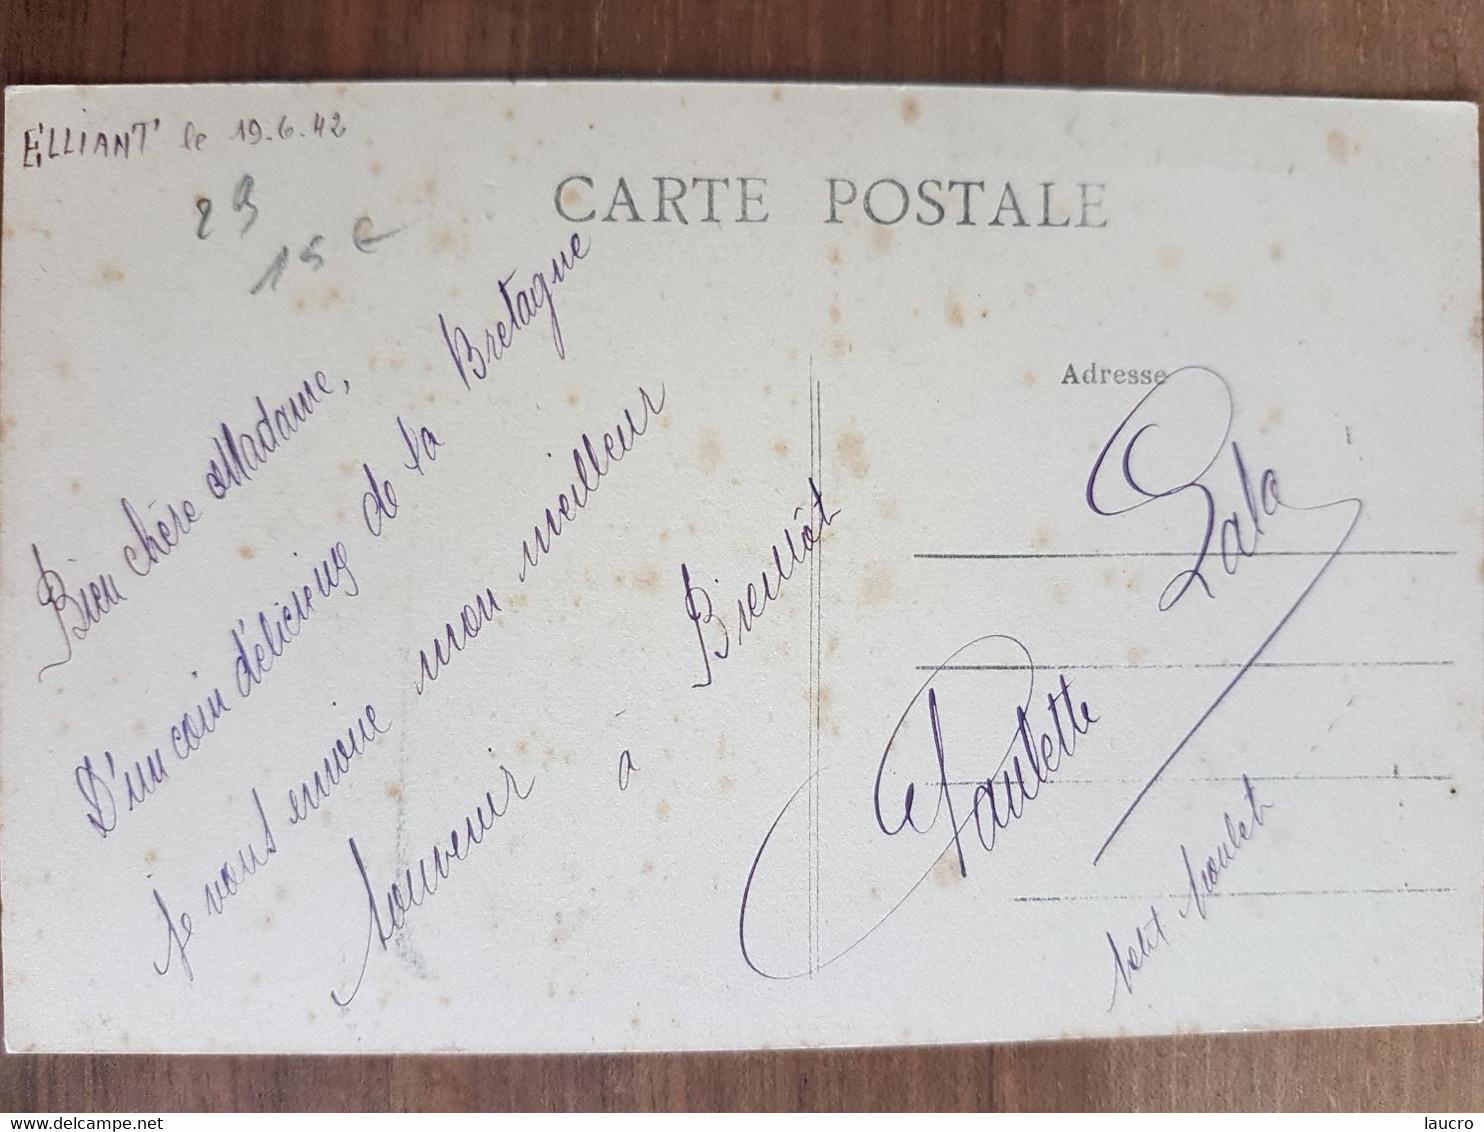 ELLIANT le 19.6.42
29
15 €
CARTE POSTALE
Bien chère Madame,
D'un coin délicieux de la Bretagne
je vous envoie mon meilleur
souvenir à Bientôt
Adresse
Lala
Paulette
petit poulet
laucro